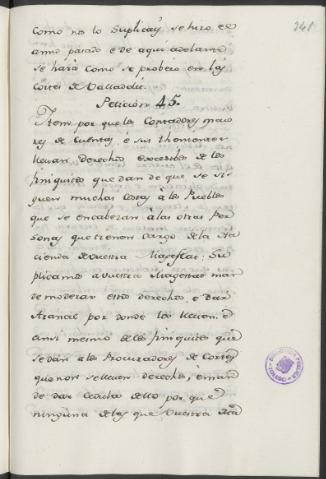 241
como no lo Suplicays se hizo el
anno pasado e de aqui adelante
se hará como se probeio en las
Cortes de Valladolid.
Peticion 45.
Item por que los Contadores mayo
res de Cuentas é sus thenientes
llevan derechos excesibos de los
finiquitos que dan de que se si
guen muchas costas á los Pueblos
que se encabezan á las otras Per
sonas que tienen cargo de la Ha
cienda de Vuestra Magestad: Su
plicamos a Vuestra Magestad man
de moderar estos derechos, e Dar
Arancel por donde los lleven: é
ansi mismo de los finiquitos que
se dán á los Procuradores de Cortes
que non se lleven derechos, é man
de dar Cedula dello por que
ninguna de las que Vuestra Ma